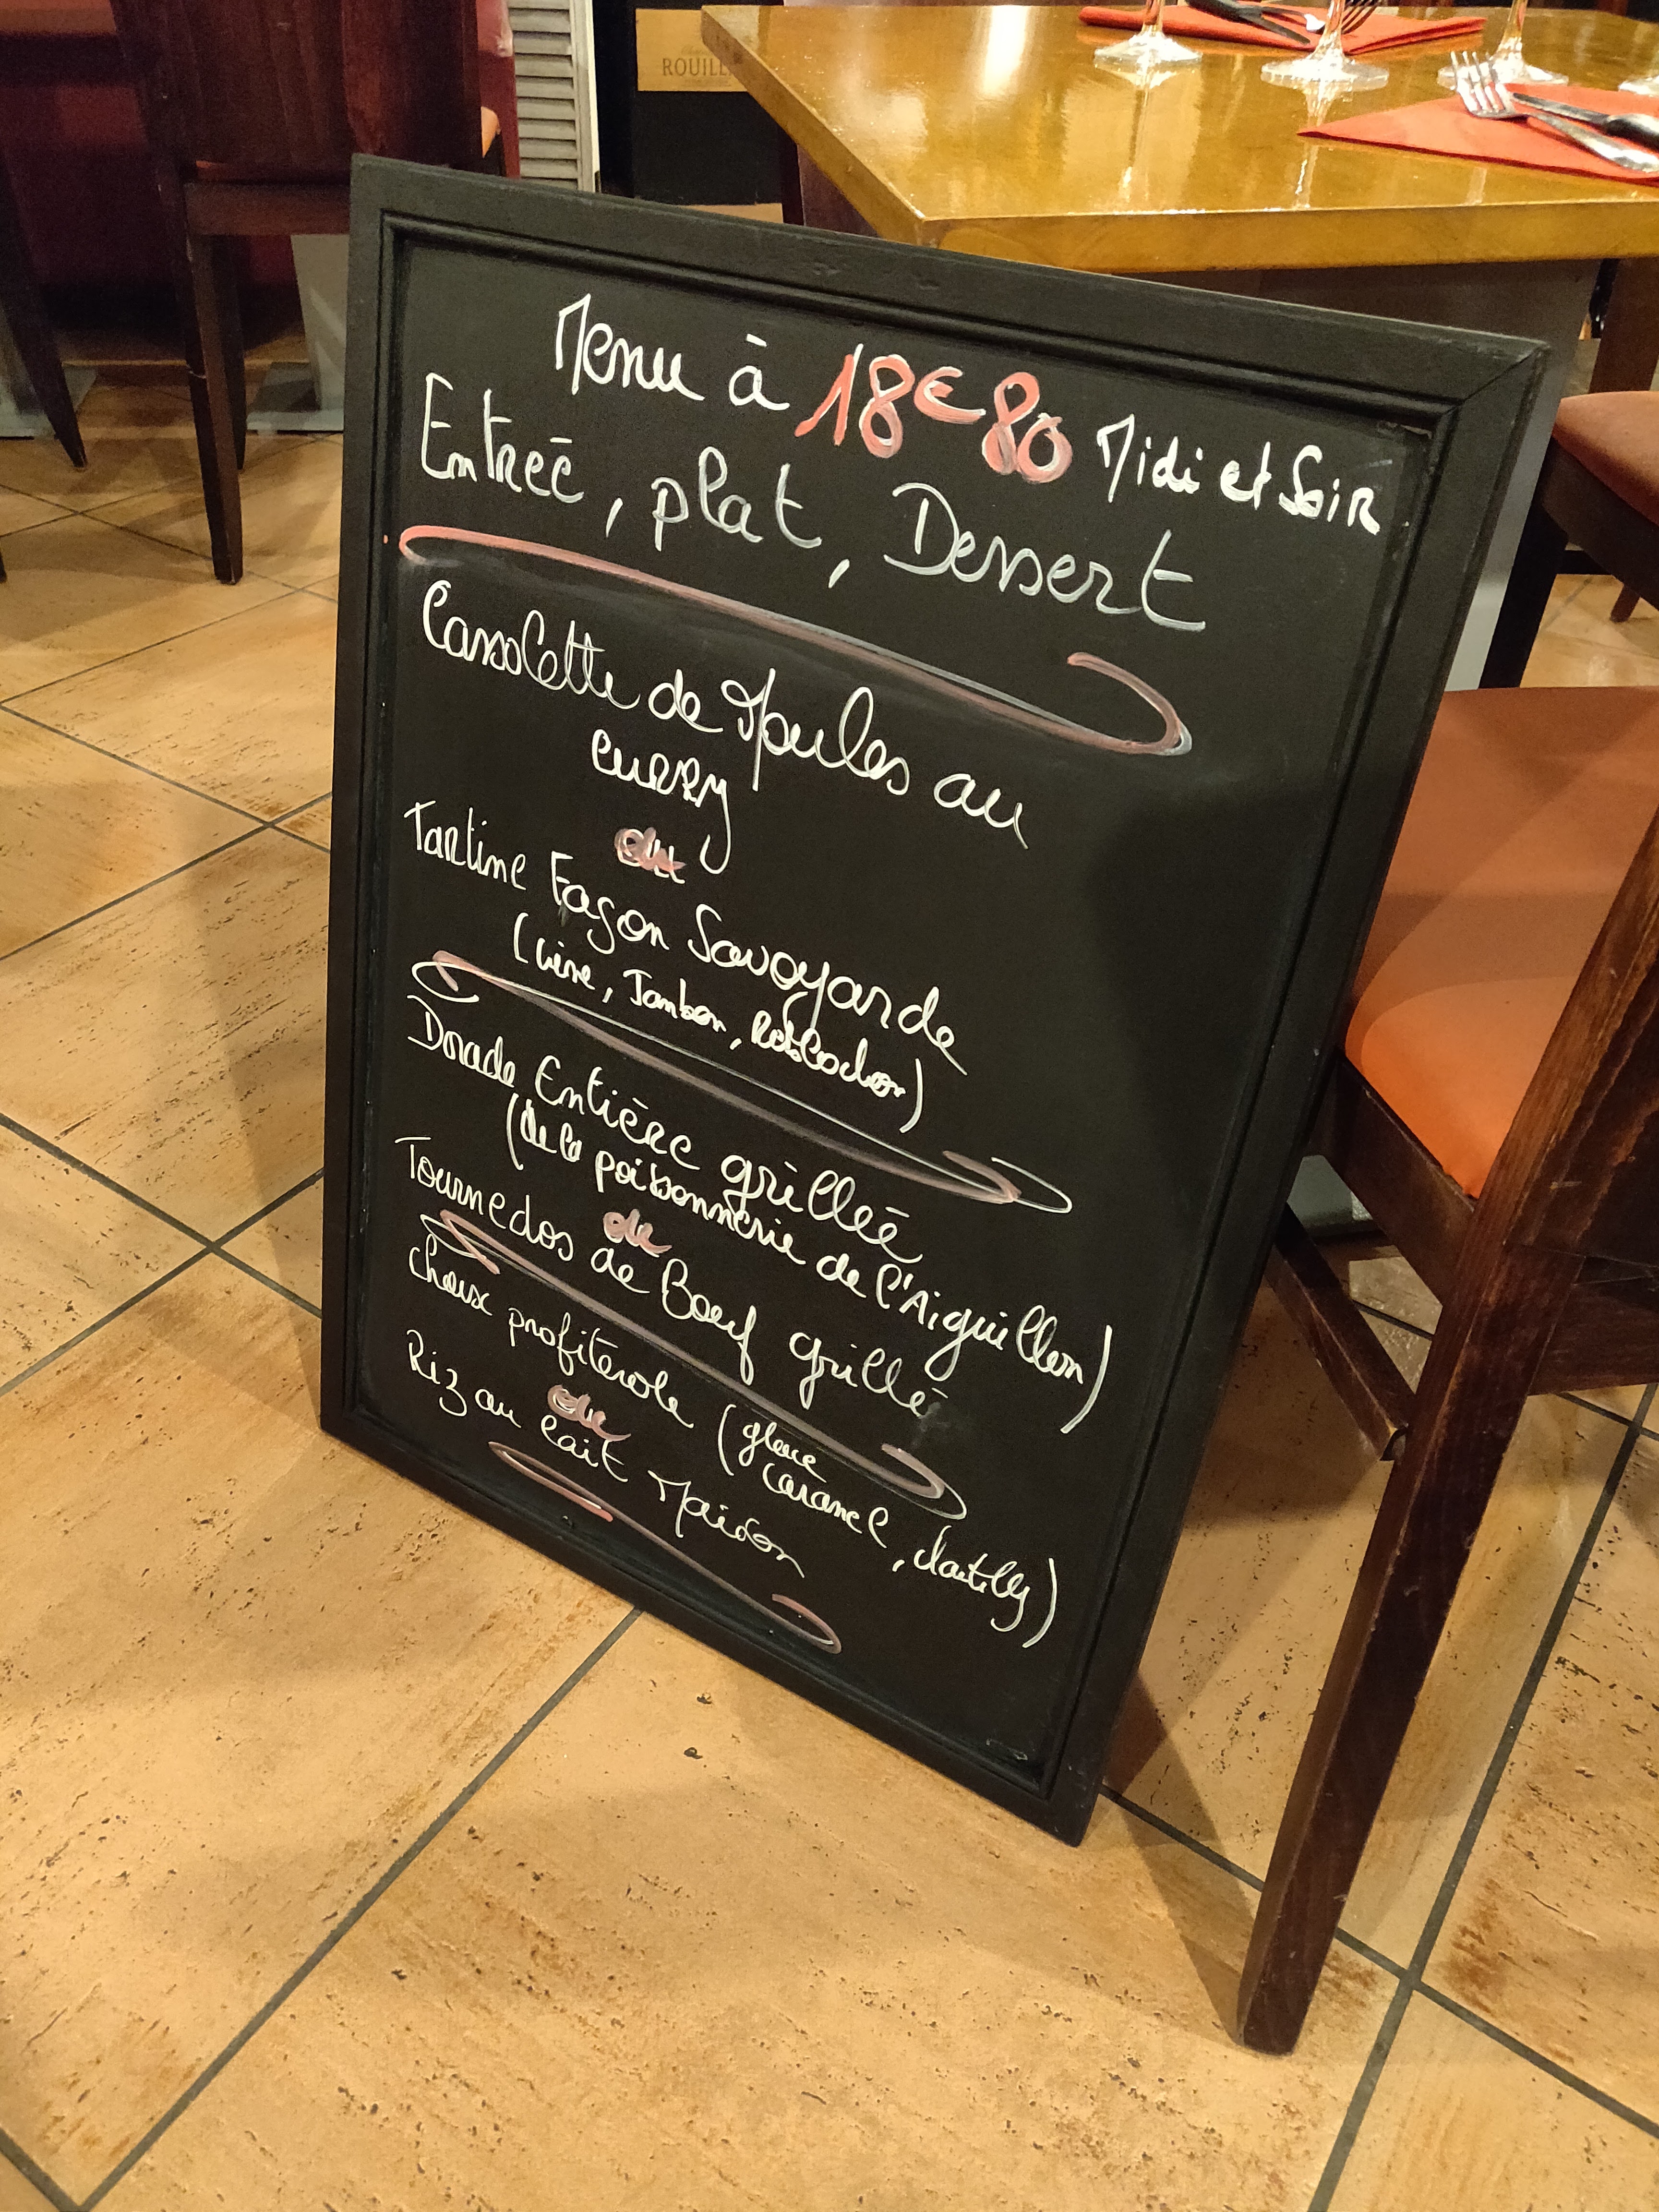 ROUILL
Menu à 18€80 Midi et Soir
Entrée, plat, Dessert
Cassolette de Moules au
curry
ou
Tartine Façon Savoyarde
(Crème, Jambon, Reblochon)
Dorade Entière grillée
(de la poissonnerie de l'Aiguillon)
ou
Tournedos de Boeuf grillé
Choux profiterole (glace
caramel, chantilly)
ou
Riz au lait Maison